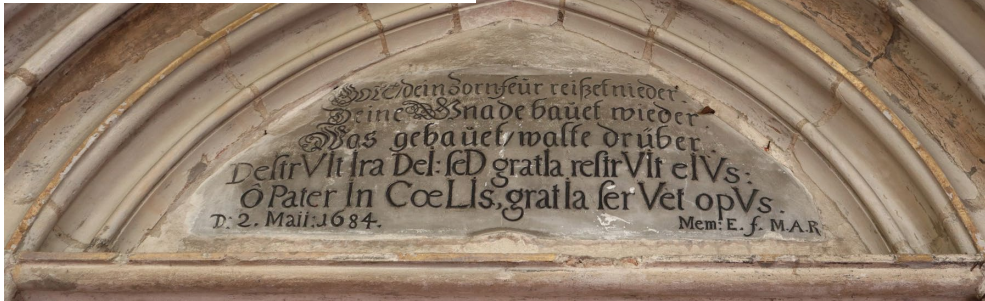 Gott dein Zornfeür reißet nieder.
Deine Gnade baüet wieder
Was gebaüet/walte drüber.
DeſtrVIt Ira DeI: ſeD gratIa reſtrVIt eIVs:
ô Pater In CœLIs, gratIa ſerVet opVs.
D: 2. Maii: 1684. Mem: E. f. M.A.R